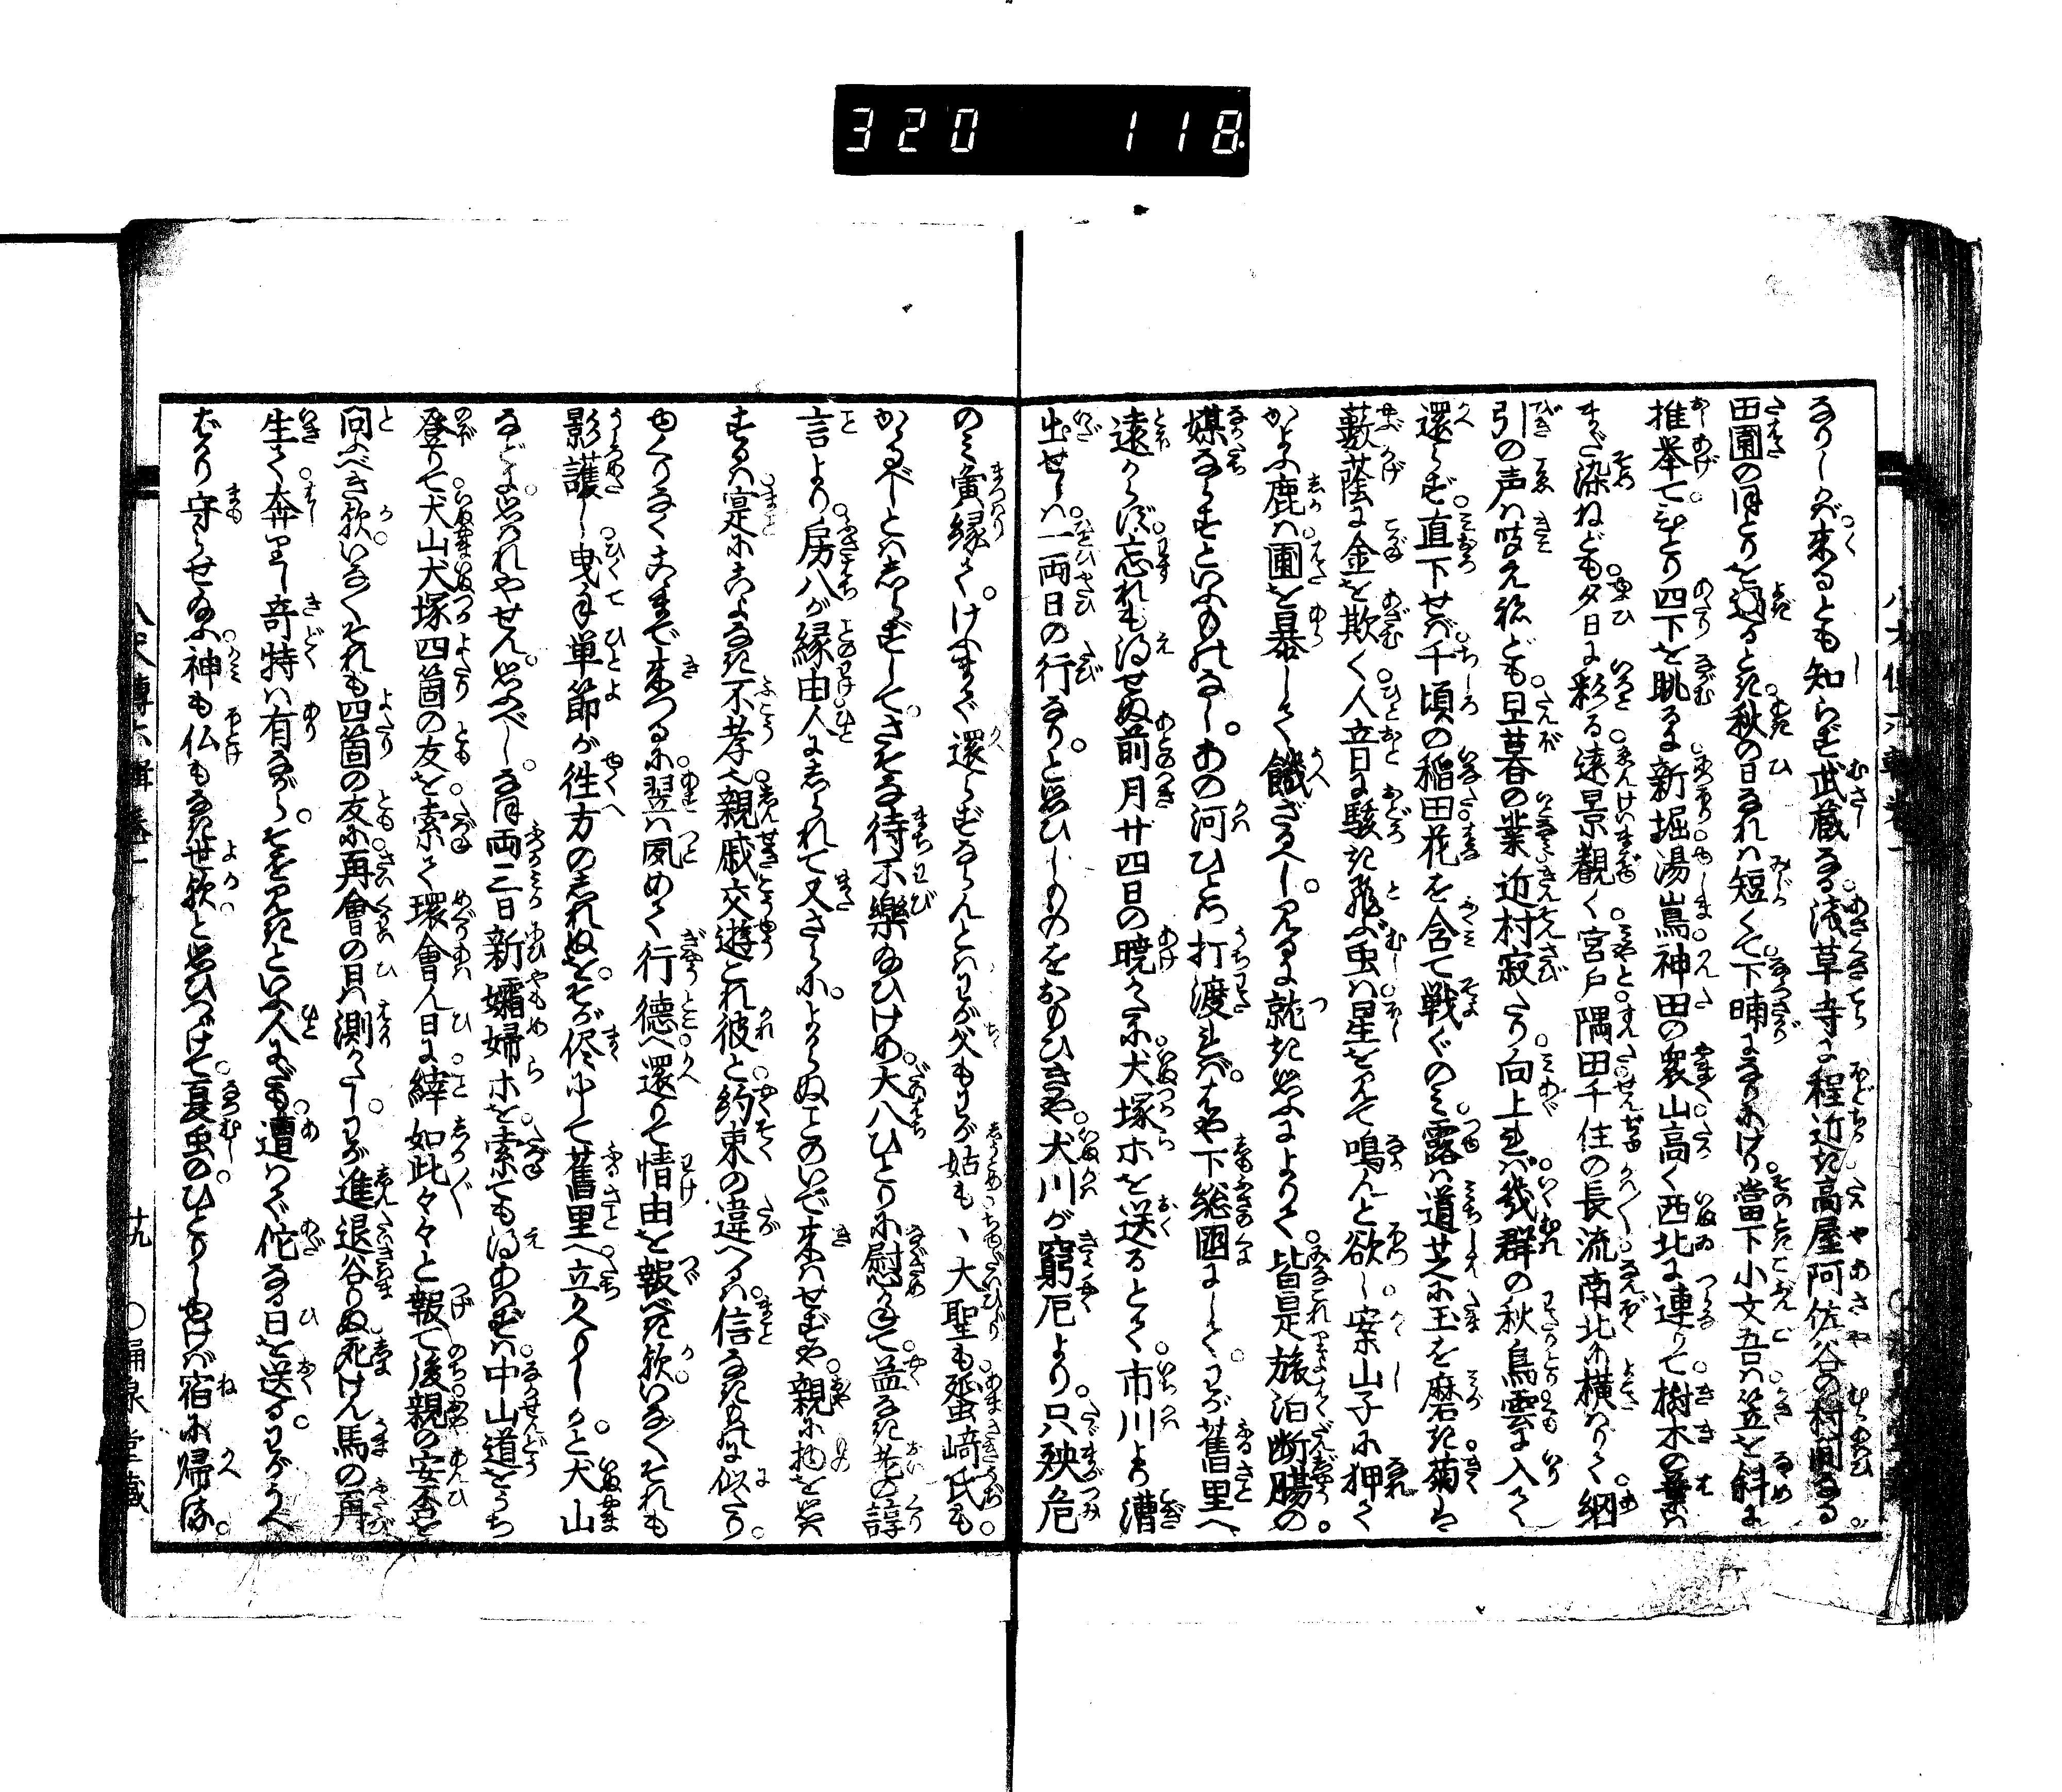 320 118
なりしかば来るとも知らず武蔵なる浅草寺に程近き高屋阿佐谷の村間なる
田圃のほとりを過ると記秋の日なれば短くて下晡になりにけり當下小文吾は笠を斜に
推挙てひとり四下を眺るに新堀湯嶌神田の衆山高く西北に連りて樹木の葉は
まだ染ねども夕日に彩る遠景観く宮戸隅田千住の長流南北に横はりて網
引の声は吱え絵ども旦暮の業近村寂たり向上れば幾群の秋鳥雲に入りて
還らず直下せば千頃の稲田花を含て戦ぐのミ露は道芝に玉を磨き菊は
藪蔭に金を欺く人音に駿き飛ぶ虫は星を見て鳴んと欲し案山子に狎て
かよふ鹿は圃を暴して饑ざるべし見るに就き思ふによりて皆是旅泊断腸の
媒ならずといふものなしあの河ひとつ打渡ればはや下総国にしてわが舊里へ
遠からず忘れも得せぬ前月廿四日の暁かたに犬塚ホを送るとて市川より漕
出せしは一両日の行なりと思ひしものをおもひきや犬川が窮厄より只殃危
のミ夤縁てけふまで還らずならんとはわが父もわが姑も丶大聖も蜑崎氏も
かゝるべしとはしらずしてさぞな待不樂給ひけめ大八ひとりに慰かねて益なき老の諄
言より房八が縁由人にしられて又さらによからぬことのいで来はせずや親に物を思
するは寔にこよなき不孝也親戚交遊とれ彼と約束の違へるは信なきものに似たり
ゆくりなくこゝまで来つるに翌は夙めて行德へ還りて情由を報べき歟いなそれも
影護し曳手単節が往方のしれぬをそが侭にして舊里へ立かへりしかと犬山
などに思はれやせん思ふべしなほ両三日新孀婦ホを索ても得あはずは中山道をうち
登りて犬山犬塚四箇の友を索て環會ん日に縡如此々々と報て後親の安否を
問ふべき歟いなそれも四箇の友に再會の日は測かたしわが進退谷りぬ死けん馬の再
生て奔りし奇特は有ながらそを見きといふ人にだも遭はで佗なる日を送るわがうへ
ばかり守らせ給ふ神も仏もなき世歟と思ひつゞけて夏虫のひとりしゆけば宿に帰る
八犬傳六輯巻一 十九 ○涌泉堂藏